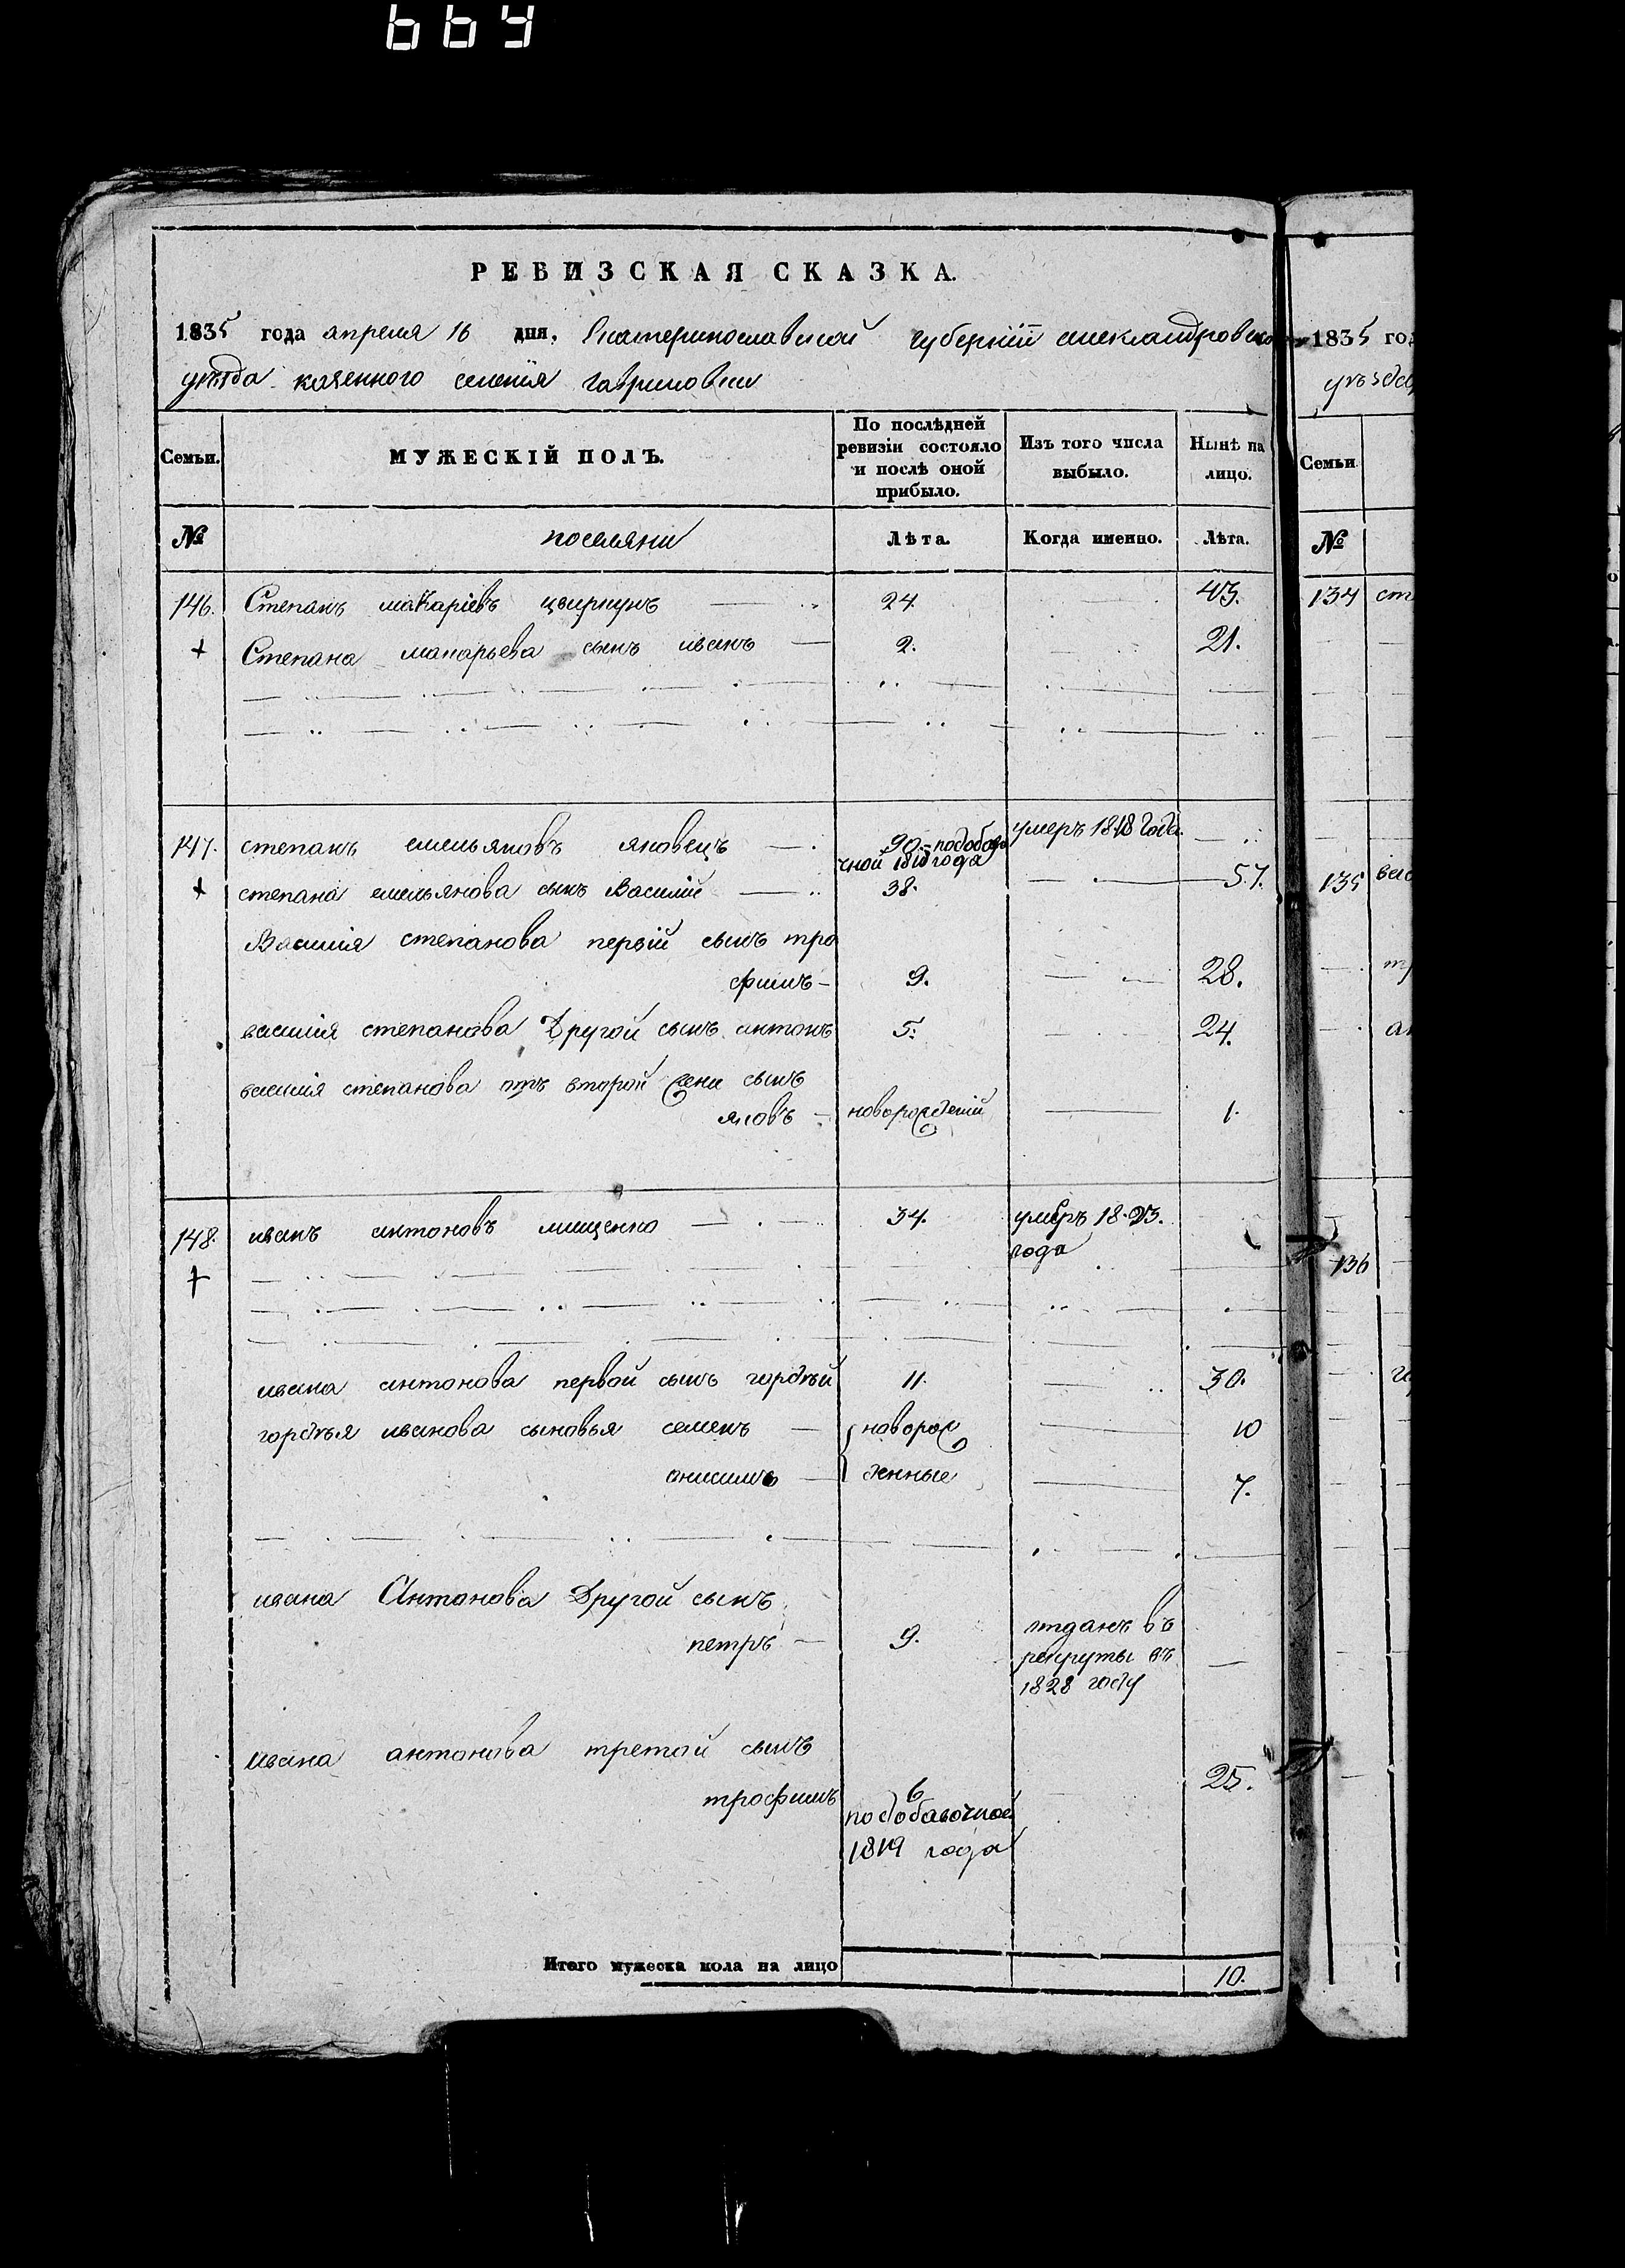 664
РЕВИЗСКАЯ СКАЗКА.
1835 года апреля 16 дня, Екатеринославской губернїи александровско
уѣзда казенного селенїя гавриловки
Семьи.
МУЖЕСКІЙ ПОЛЪ.
По послѣдней ревизіи состояло и послѣ оной прибыло.
Изъ того числа выбыло.
Нынѣ на лицо.
№ поселяни Лѣта. Когда именно. Лѣта.
146. Степанъ макаріевъ цвиркунъ 24 43.
Степана макарьева сынъ иванъ 2. 21.
147. степанъ емельяновъ яковецъ 90. подобаво умеръ 1818 года
чной 1818 года
степана емельянова сынъ Василій 38. 57.
Василія степанова первїй сынъ тро
фимъ 9. 28.
василія степанова Другой сынъ антонъ 5. 24.
василія степанова отъ второй жени сынъ
яковъ новорожденїй 1.
148. иванъ антоновъ мищенко 34. умеръ 1823.
года
ивана антонова первой сынъ гордѣй 11. 30.
гордѣя иванова сыновья семенъ новорож 10
онисимъ денные 7.
ивана Антонова Другой сынъ
петръ 9. отданъ въ
рекруты въ
1828 году
ивана антонова третой сынъ
трофимъ 6 25.
подобавочной
1819 года
Итого мужеска пола на лицо 10.
1835 год
уѣзда
Семьи
№
134 ст
135 вас
136